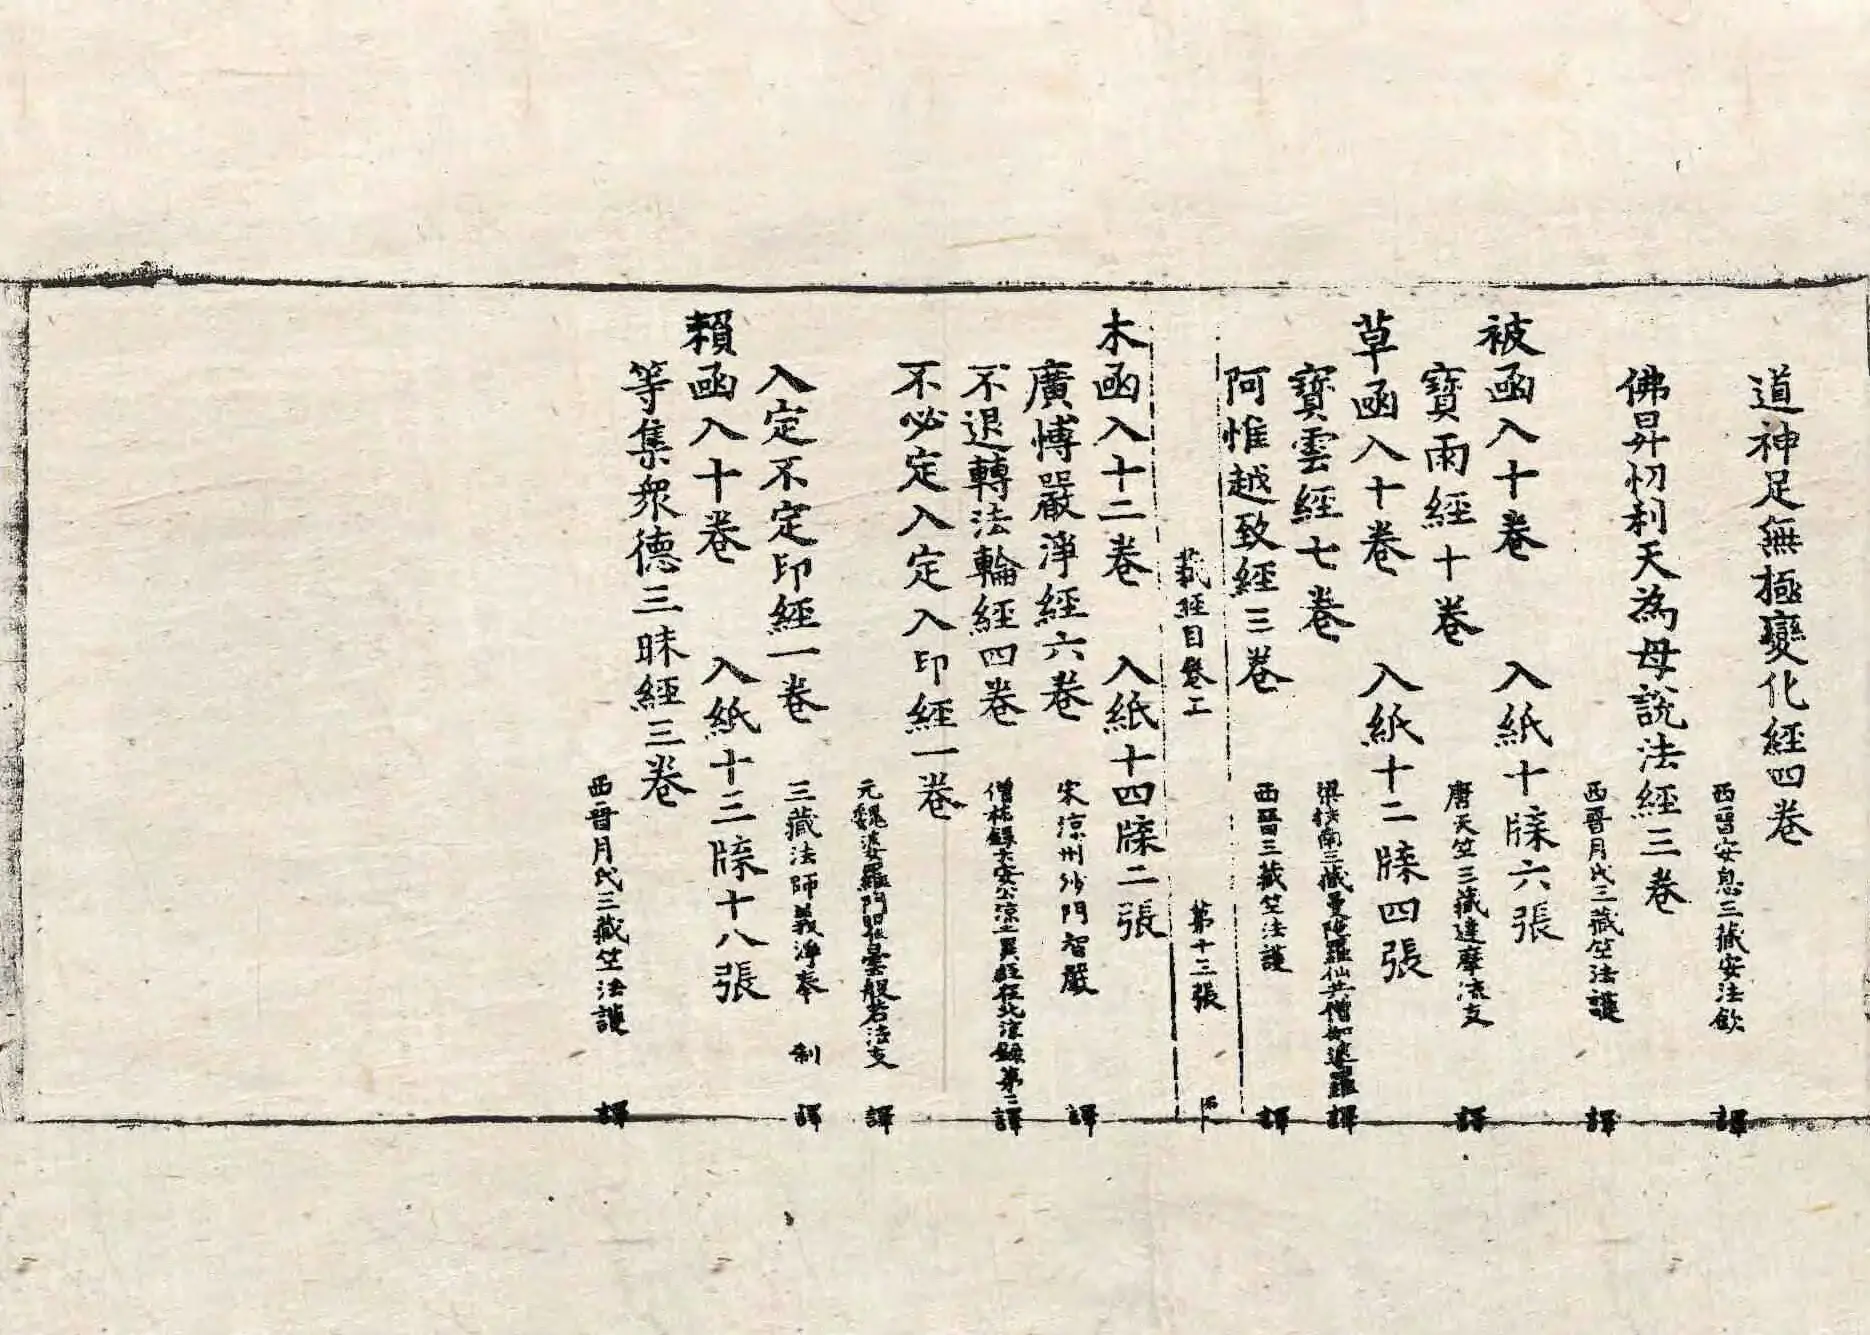 道神足無極變化經四卷
西晉安息三藏安法欽 譯
佛昇忉利天為母說法經三卷
西晉月氏三藏竺法護 譯
被函入十卷 入紙十牒六張
寶雨經十卷
唐天竺三藏達摩流支 譯
草函入十卷 入紙十二牒四張
寶雲經七卷
梁扶南三藏曼陀羅仙共僧伽婆羅 譯
阿惟越致經三卷
西晉三藏竺法護 譯
藏經目卷上 第十三張
木函入十二卷 入紙十四牒二張
廣博嚴淨經六卷
宋涼州沙門智嚴 譯
不退轉法輪經四卷
僧祐錄云安公涼土異經在北涼錄第二譯
不必定入定入印經一卷
元魏婆羅門瞿曇般若流支 譯
入定不定印經一卷
三藏法師義淨奉 制 譯
賴函入十卷 入紙十三牒十八張
等集衆德三昧經三卷
西晉月氏三藏竺法護 譯